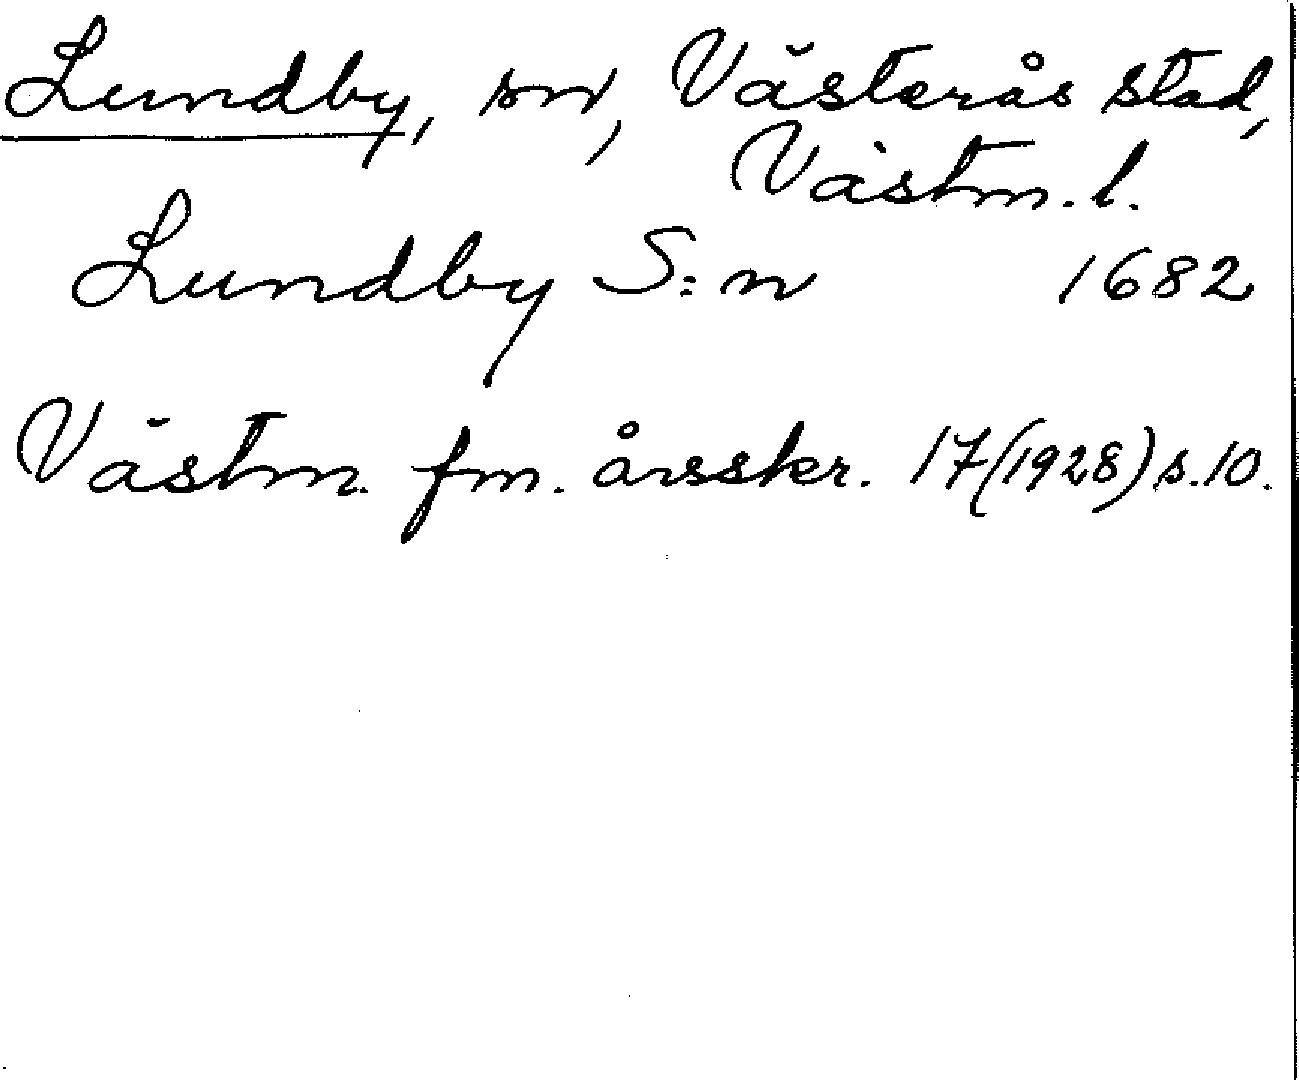 Lundby, sn, Västerås stad,
Västm. l.
Lundby S:n 1682
Västm. fm. årsskr. 17(1928) s. 10.